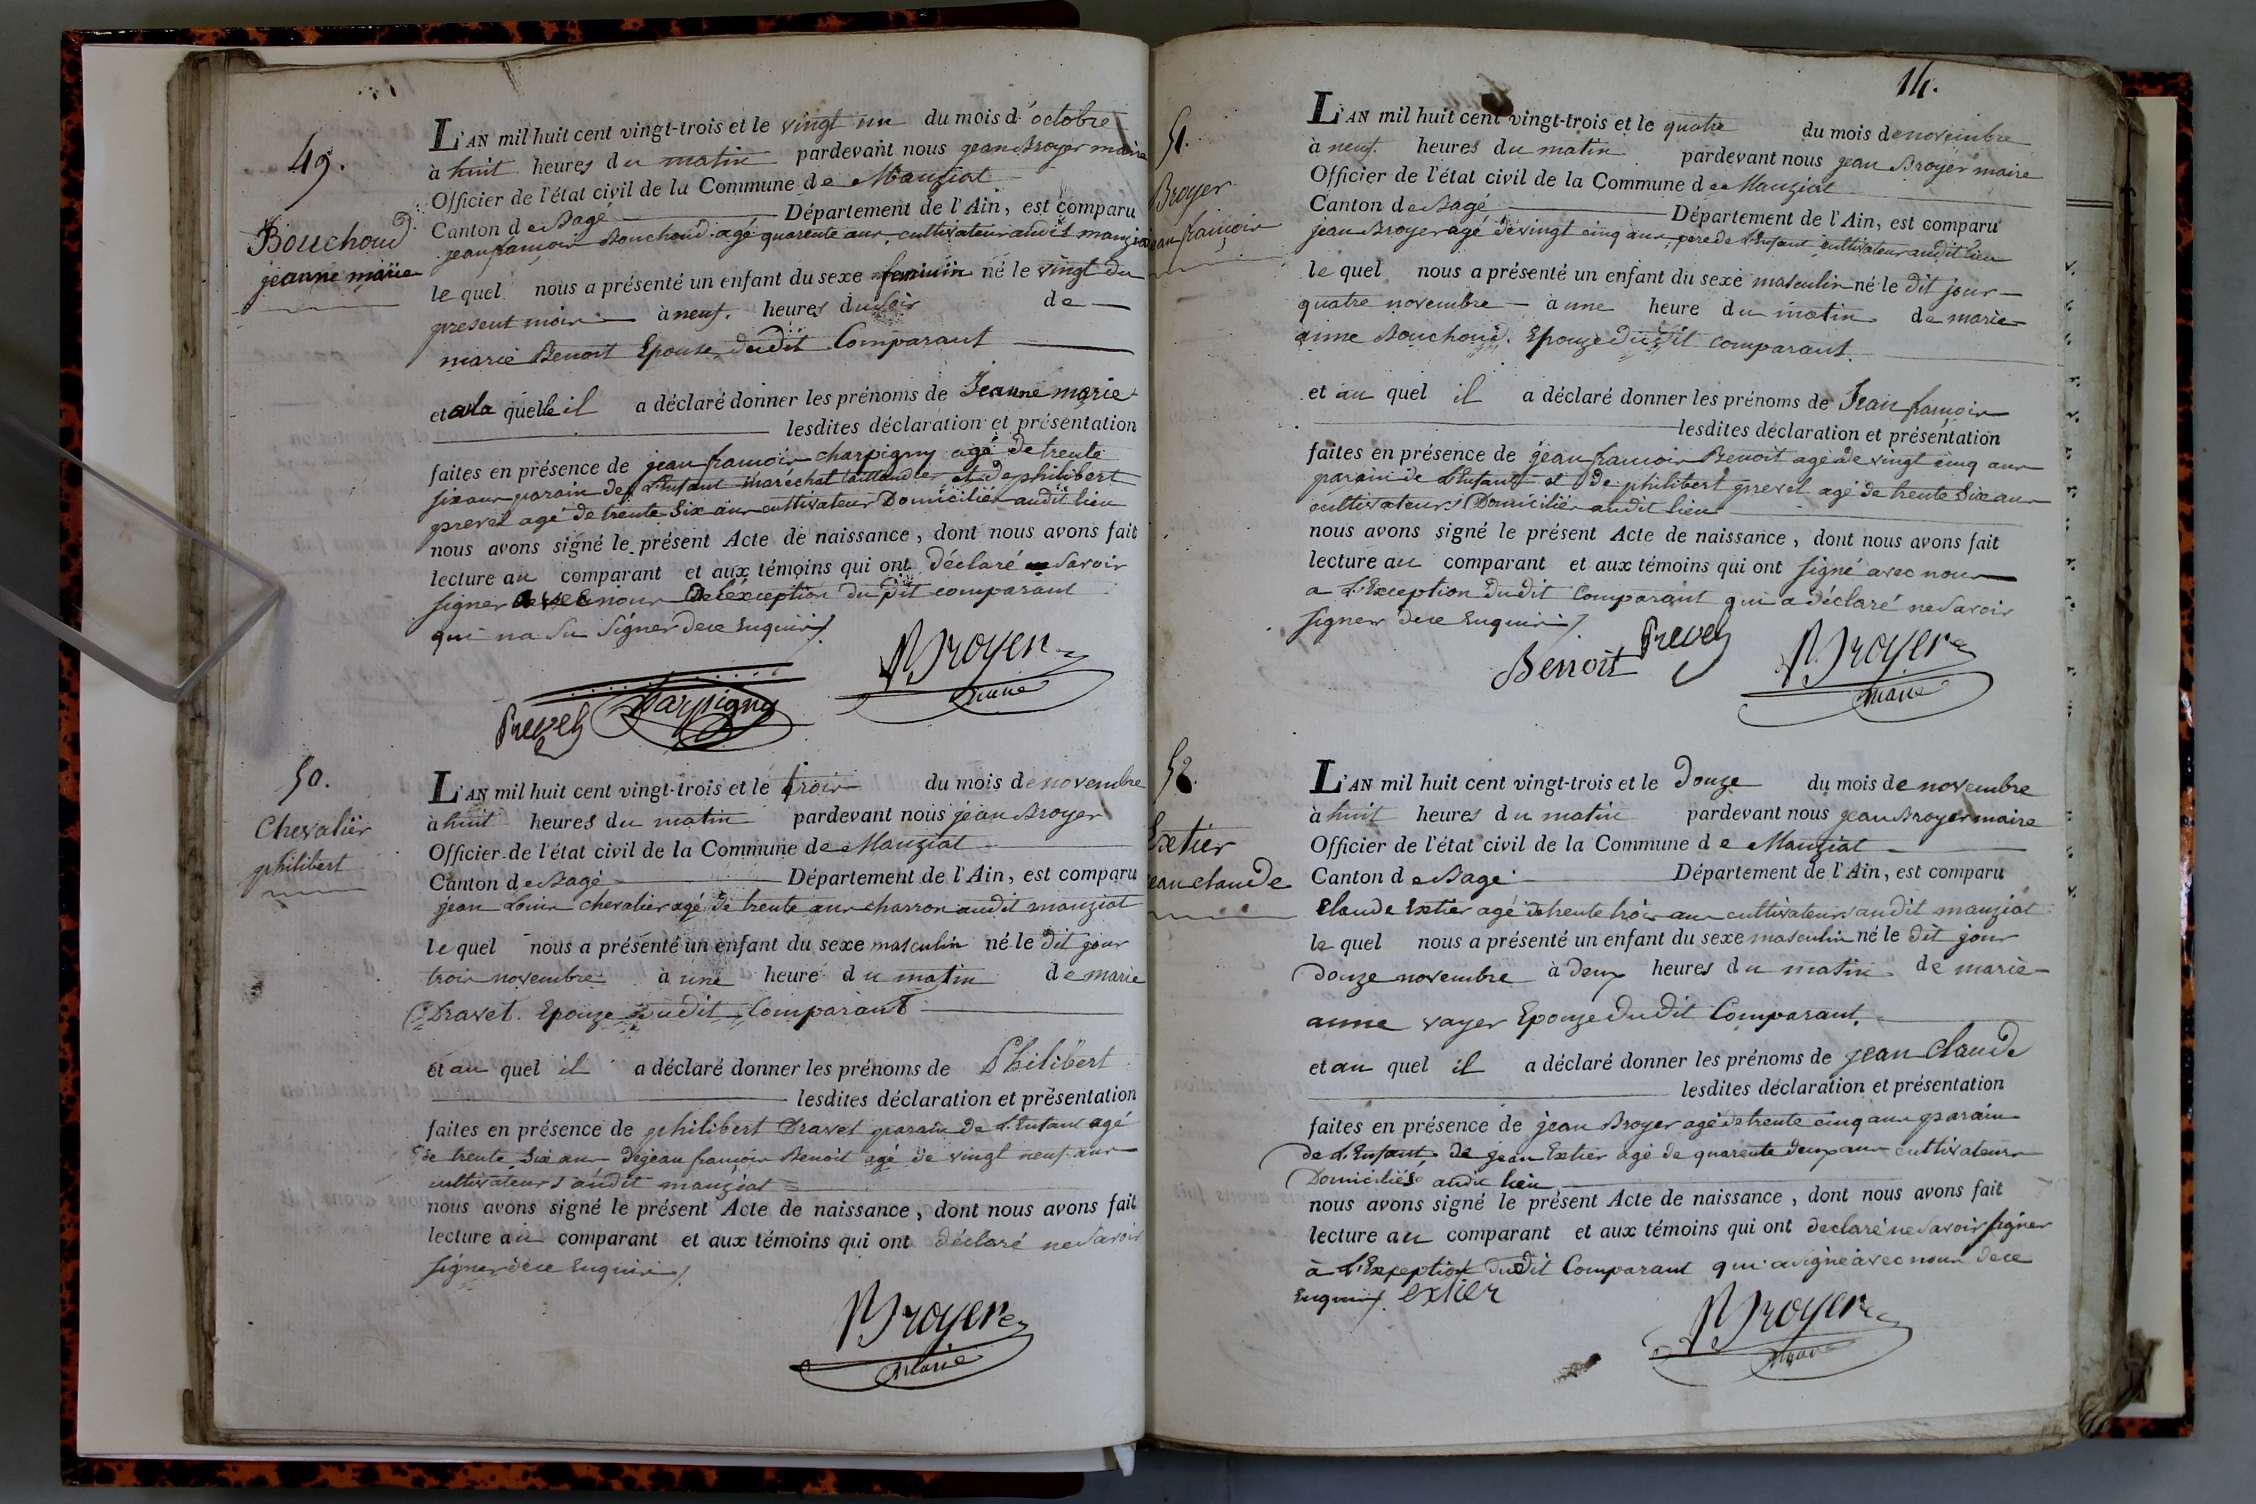 49.
Bouchoud
jeanne marie
L'AN mil huit cent vingt-trois et le vingt un du mois d'octobre
à huit heures du matin pardevant nous jean Broyer maire
Officier de l'état civil de la Commune de Manziat
Canton de Bagé Département de l'Ain, est comparu
jean francois Bouchoud agé quarente ans, cultivateur audit manziat
le quel nous a présenté un enfant du sexe feminin né le vingt du
present mois à neuf heures du soir de
marie Benoit Epouse dudit Comparant
et a la quelle il a déclaré donner les prénoms de Jeanne marie
lesdites déclaration et présentation
faites en présence de jean francois charpigny agé de trente
six ans parain de L'Enfant maréchal taillandier et de philibert
prevel agé de trente Six ans cultivateur Domiciliés audit lieu
nous avons signé le présent Acte de naissance, dont nous avons fait
lecture au comparant et aux témoins qui ont déclaré savoir
signer avec nous a L'éxception du dit comparant
qui na su signer dece Enquis /.
Prevel Charpigny Broyer
maire
50.
Chevalier
philibert
L'AN mil huit cent vingt-trois et le trois du mois de novembre
à huit heures du matin pardevant nous jean Broyer
Officier de l'état civil de la Commune de Manziat
Canton de Bagé Département de l'Ain, est comparu
jean Louis chevalier agé de trente ans charron audit manziat
le quel nous a présenté un enfant du sexe masculin né le dit jour
trois novembre à une heure du matin de marie
Dravet Epouze dudit Comparant
et au quel il a déclaré donner les prénoms de Philibert
lesdites déclaration et présentation
faites en présence de philibert Dravet parain de L'Enfant agé
de trente Six ans de jean francois Benoit agé de vingt neuf ans
cultivateurs audit manziat
nous avons signé le présent Acte de naissance, dont nous avons fait
lecture au comparant et aux témoins qui ont déclaré ne savoir
signer dece Enquis /.
Broyer
Maire
14.
51.
Broyer
jean francois
L'AN mil huit cent vingt-trois et le quatre du mois de novembre
à neuf heures du matin pardevant nous jean Broyer maire
Officier de l'état civil de la Commune de Manziat
Canton de Bagé Département de l'Ain, est comparu
jean Broyer agé de vingt cinq ans pere de L'Enfant cultivateur audit lieu
le quel nous a présenté un enfant du sexe masculin né le dit jour
quatre novembre à une heure du matin de marie
anne Bouchoud Epouze dudit comparant
et au quel il a déclaré donner les prénoms de Jean francois
lesdites déclaration et présentation
faites en présence de jean francois Benoit agé de vingt cinq ans
parain de L'Enfant et de philibert prevel agé de trente Six ans
cultivateurs Domiciliés audit lieu
nous avons signé le présent Acte de naissance, dont nous avons fait
lecture au comparant et aux témoins qui ont signé avec nous
a L'Exception dudit Comparant qui a déclaré ne savoir
signer dece Enquis /.
Benoit Prevel Broyer
maire
52.
Extier
jean claude
L'AN mil huit cent vingt-trois et le Douze du mois de novembre
à huit heures du matin pardevant nous jean Broyer maire
Officier de l'état civil de la Commune de Manziat
Canton de Bagé Département de l'Ain, est comparu
Claude Extier agé de trente trois ans cultivateurs audit manziat
le quel nous a présenté un enfant du sexe masculin né le dit jour
douze novembre à deux heures du matin de marie
anne vayer Epouze dudit Comparant
et au quel il a déclaré donner les prénoms de jean Claude
lesdites déclaration et présentation
faites en présence de jean Broyer agé de trente cinq ans parain
de L'Enfant de jean Extier agé de quarente deux ans cultivateurs
Domiciliés audit lieu
nous avons signé le présent Acte de naissance, dont nous avons fait
lecture au comparant et aux témoins qui ont declaré ne savoir signer
à L'Exception dudit Comparant qui a signé avec nous dece
Enquis /. extier
Broyer
Maire